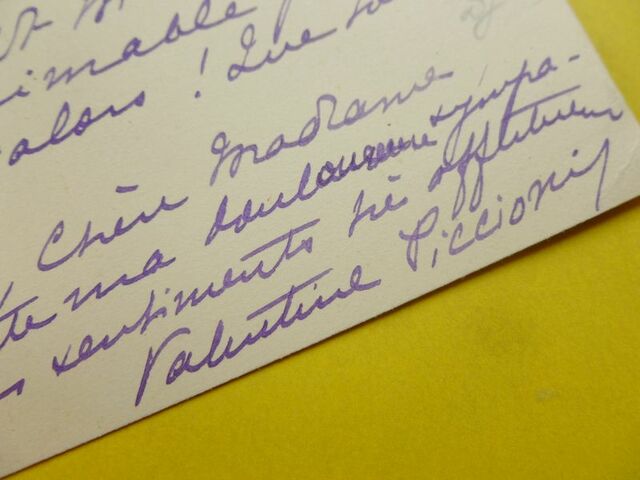 imable
alors ! Que
Chère Madame
te ma douloureuse sympa-
sentiments très affectueux
Valentine Piccioni